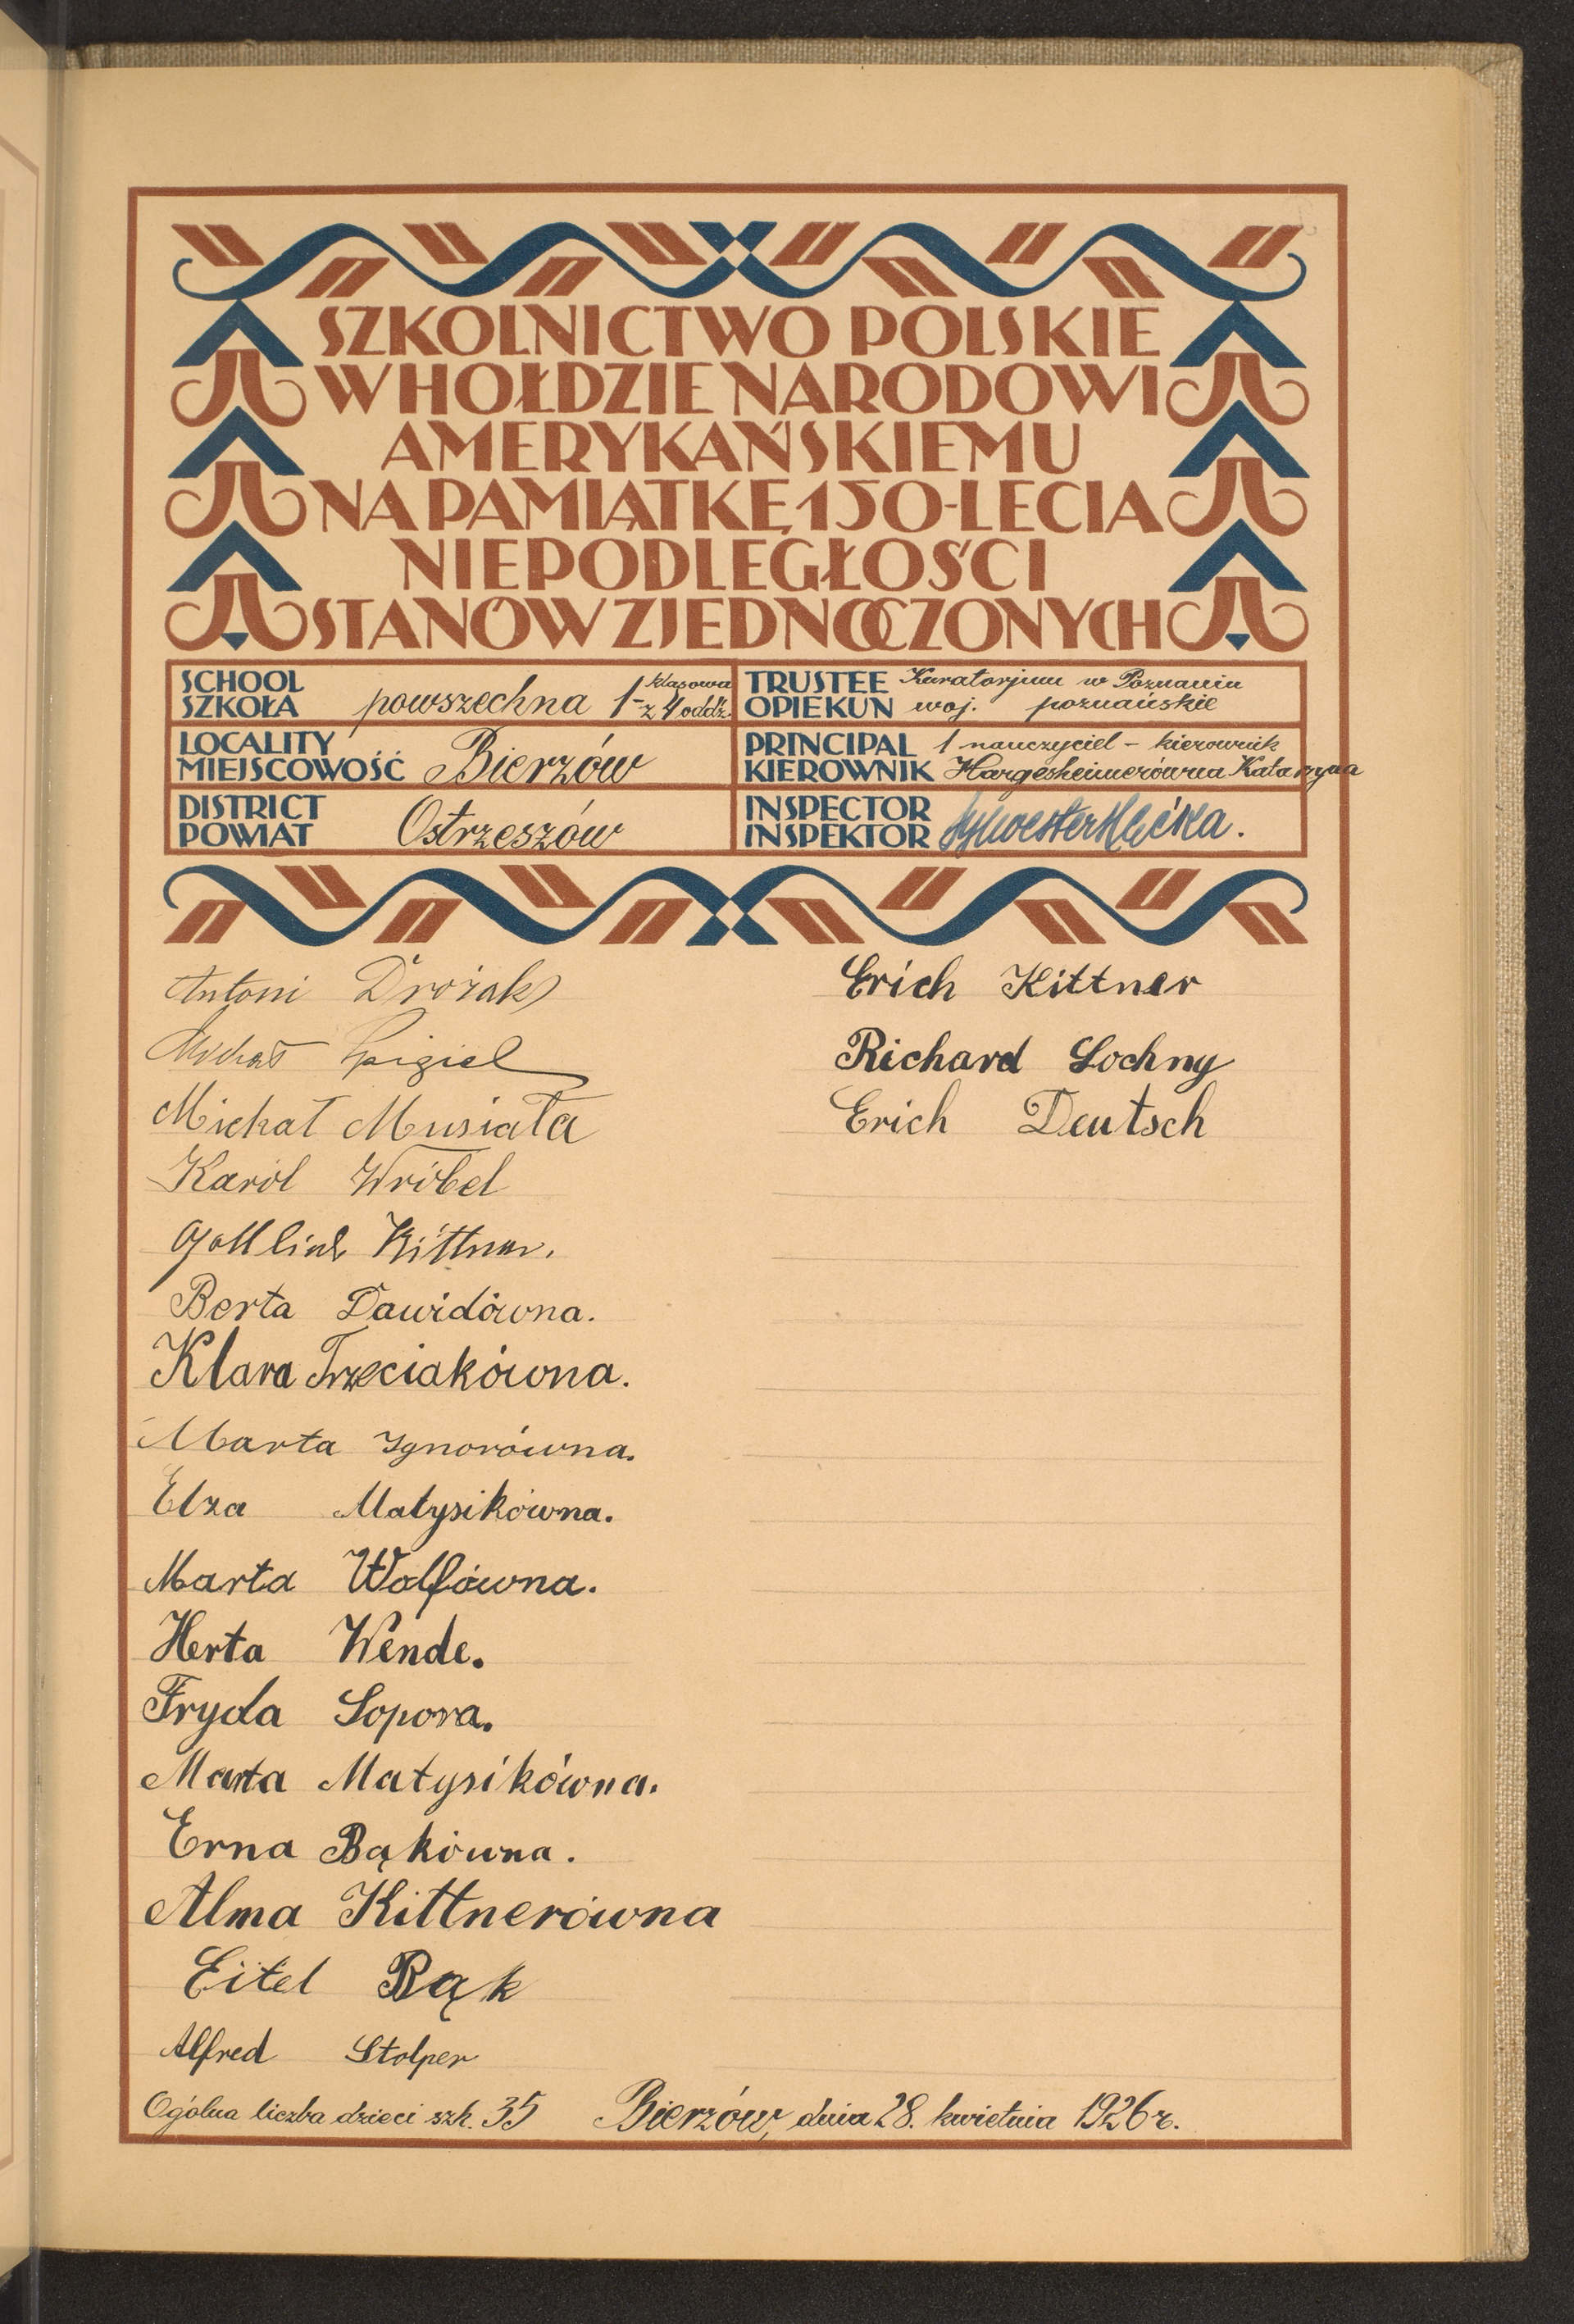 SZKOLNICTWO POLSKIE
W HOŁDZIE NARODOWI
AMERYKAŃSKIEMU
NA PAMIĄTKĘ 150-LECIA
NIEPODLEGŁOŚCI
STANÓW ZJEDNOCZONYCH
SCHOOL
SZKOŁA powszechna 1-klasowa z 4 oddz.
TRUSTEE Kuratorjum w Poznaniu
OPIEKUN woj. poznańskie
LOCALITY
MIEJSCOWOŚĆ Bierzów
PRINCIPAL 1 nauczyciel - kierownik
KIEROWNIK Hargesheimerówna Katarzyna
DISTRICT
POWIAT Ostrzeszów
INSPECTOR
INSPEKTOR Sylwester
Antoni Drożak
Michał
Michał Musiała
Karól Wróbel
Gottlieb Kittner.
Berta Dawidówna.
Klara Trzeciakówna.
Marta Ignorówna.
Elza Matysikówna.
Marta Wolfówna.
Herta Wende.
Fryda Sopora.
Marta Matysikówna.
Erna Bąkówna.
Alma Kittnerówna
Eitel Bąk
Alfred Stolper
Erich Kittner
Richard Lochny
Erich Deutsch
Ogólna liczba dzieci szk. 35 Bierzów, dnia 28. kwietnia 1926 r.